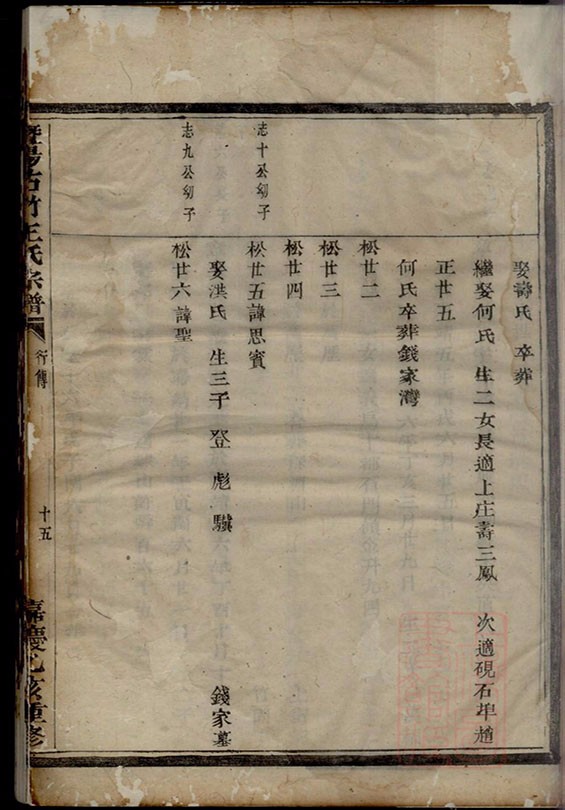 娶壽氏 卒葬
繼娶何氏 生二女長適上庄壽三鳳 次適硯石埠趙
正廿五
何氏卒葬錢家灣
松廿二
松廿三
松廿四
志十公幼子
松廿五諱思賓
娶洪氏 生三子 登 彪 驥 錢家墓
志九公幼子
松廿六諱聖
暨陽古竹王氏宗譜
行傳
十五
嘉慶乙亥重修